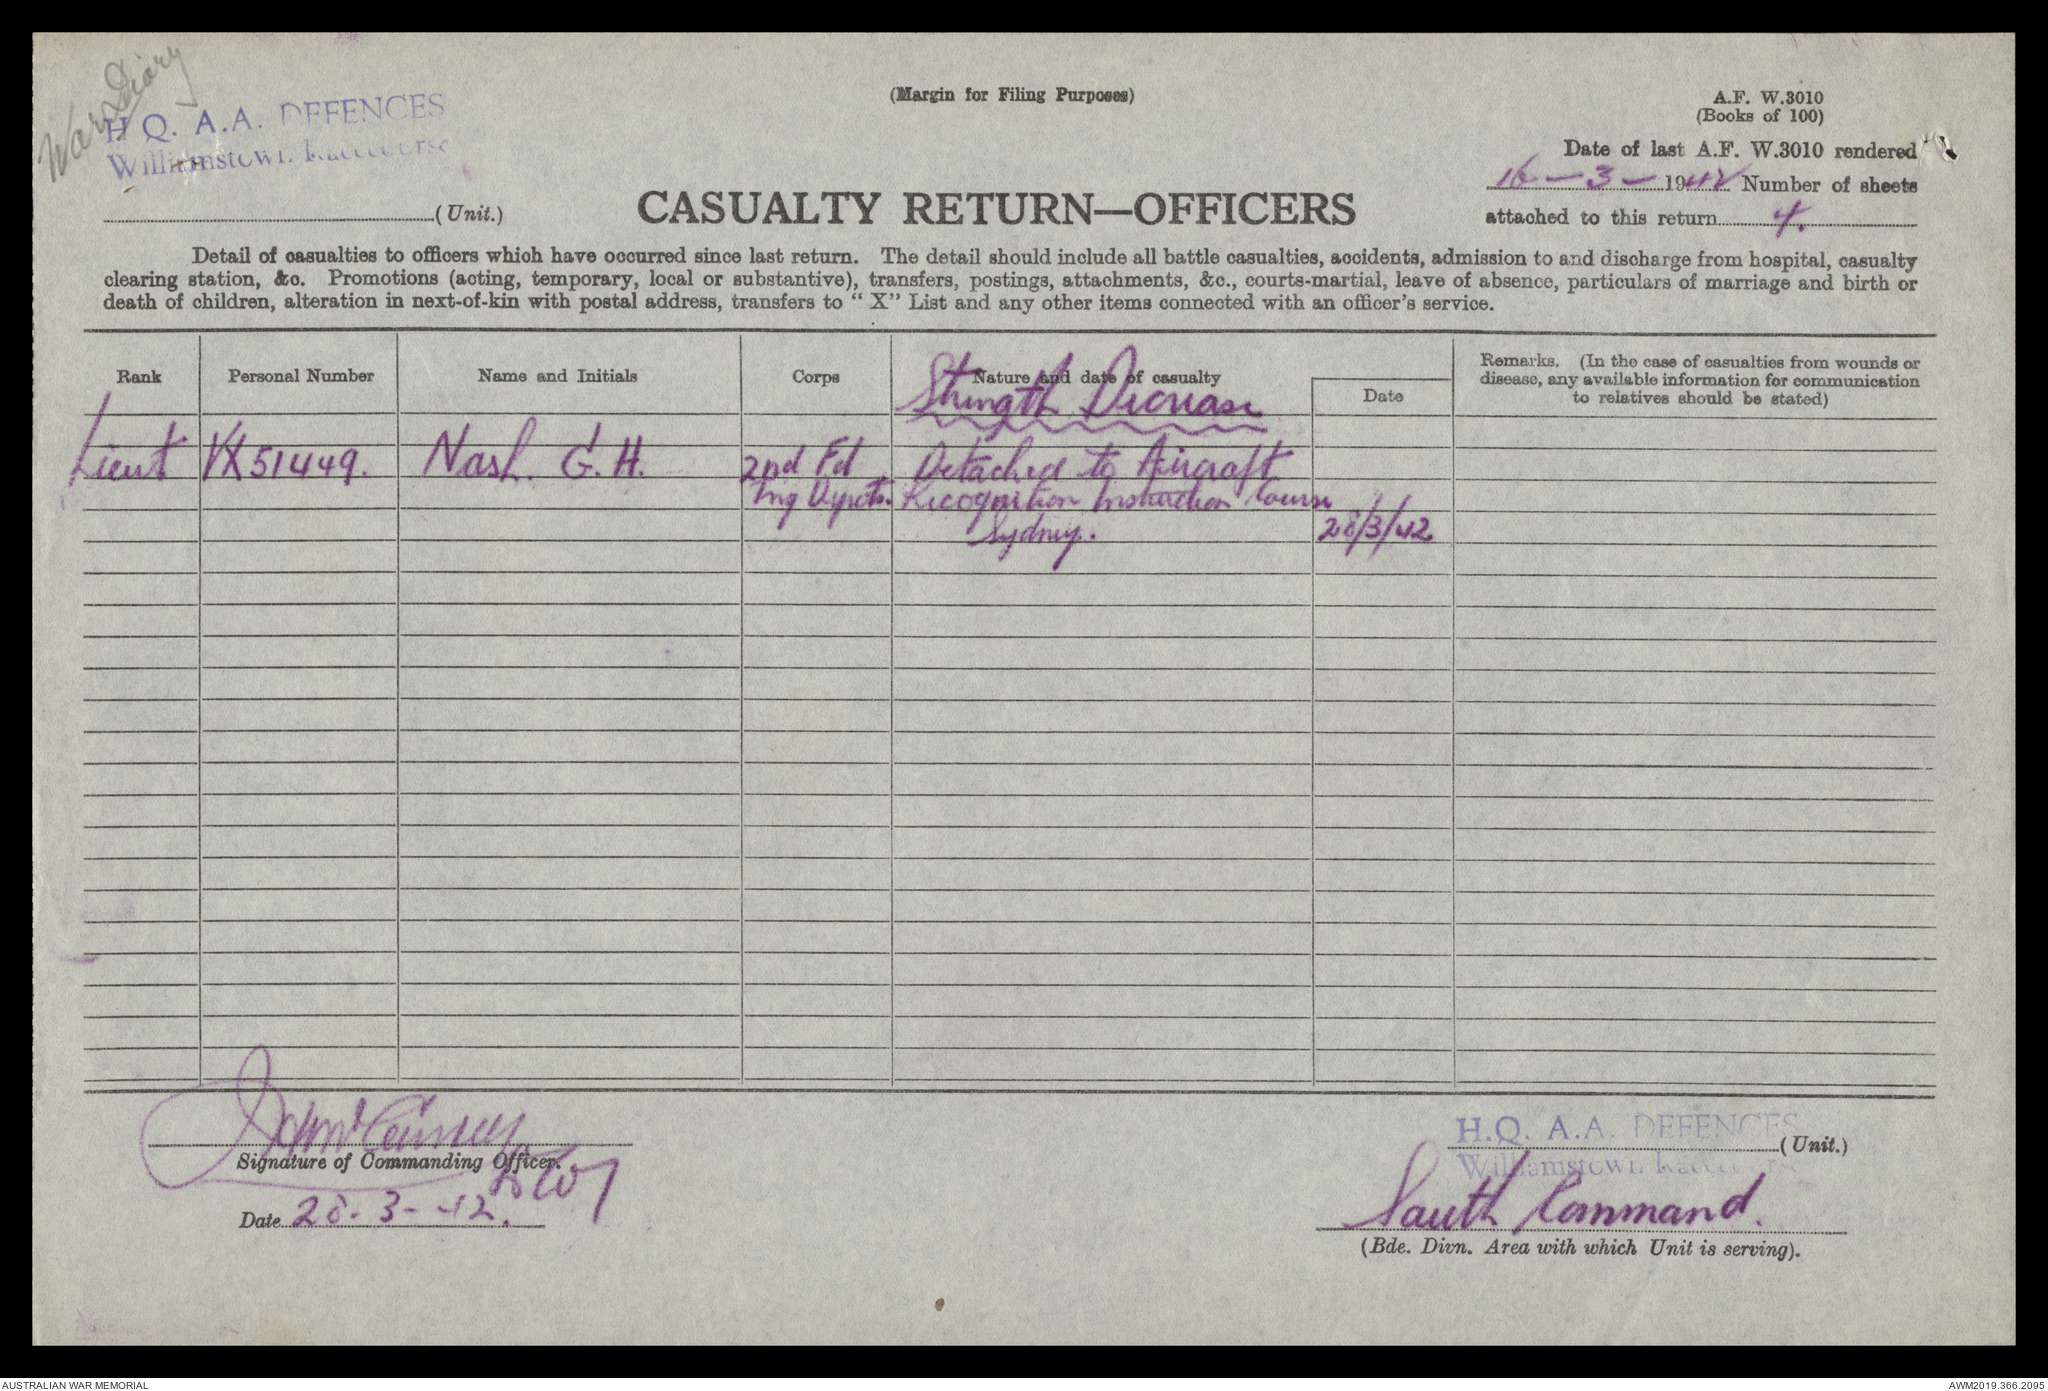 War Diary
H.Q. A.A. DEFENCES
Williamstown. Racecourse
(Unit.)
(Margin for Filing Purposes)
A.F. W.3010
(Books of 100)
Date of last A.F. W.3010 rendered
16-3-1942 Number of sheets
attached to this return 4.
CASUALTY RETURN—OFFICERS
Detail of casualties to officers which have occurred since last return. The detail should include all battle casualties, accidents, admission to and discharge from hospital, casualty
clearing station, &c. Promotions (acting, temporary, local or substantive), transfers, postings, attachments, &c., courts-martial, leave of absence, particulars of marriage and birth or
death of children, alteration in next-of-kin with postal address, transfers to "X" List and any other items connected with an officer's service.
Rank Personal Number Name and Initials Corps Nature and date of casualty Date
Remarks. (In the case of casualties from wounds or
disease, any available information for communication
to relatives should be stated)
Strength Decrease
Lieut VX51449. Nash. G.H. 2nd Fd Detached to Aircraft
Tng Depots. Recognition Instruction Course
Sydney. 28/3/42
Signature of Commanding Officer.
Date 28-3-42.
H.Q. A.A. DEFENCES
(Unit.)
Williamstown. Racecourse
South Command.
(Bde. Divn. Area with which Unit is serving).
AUSTRALIAN WAR MEMORIAL
AWM2019.366.2095